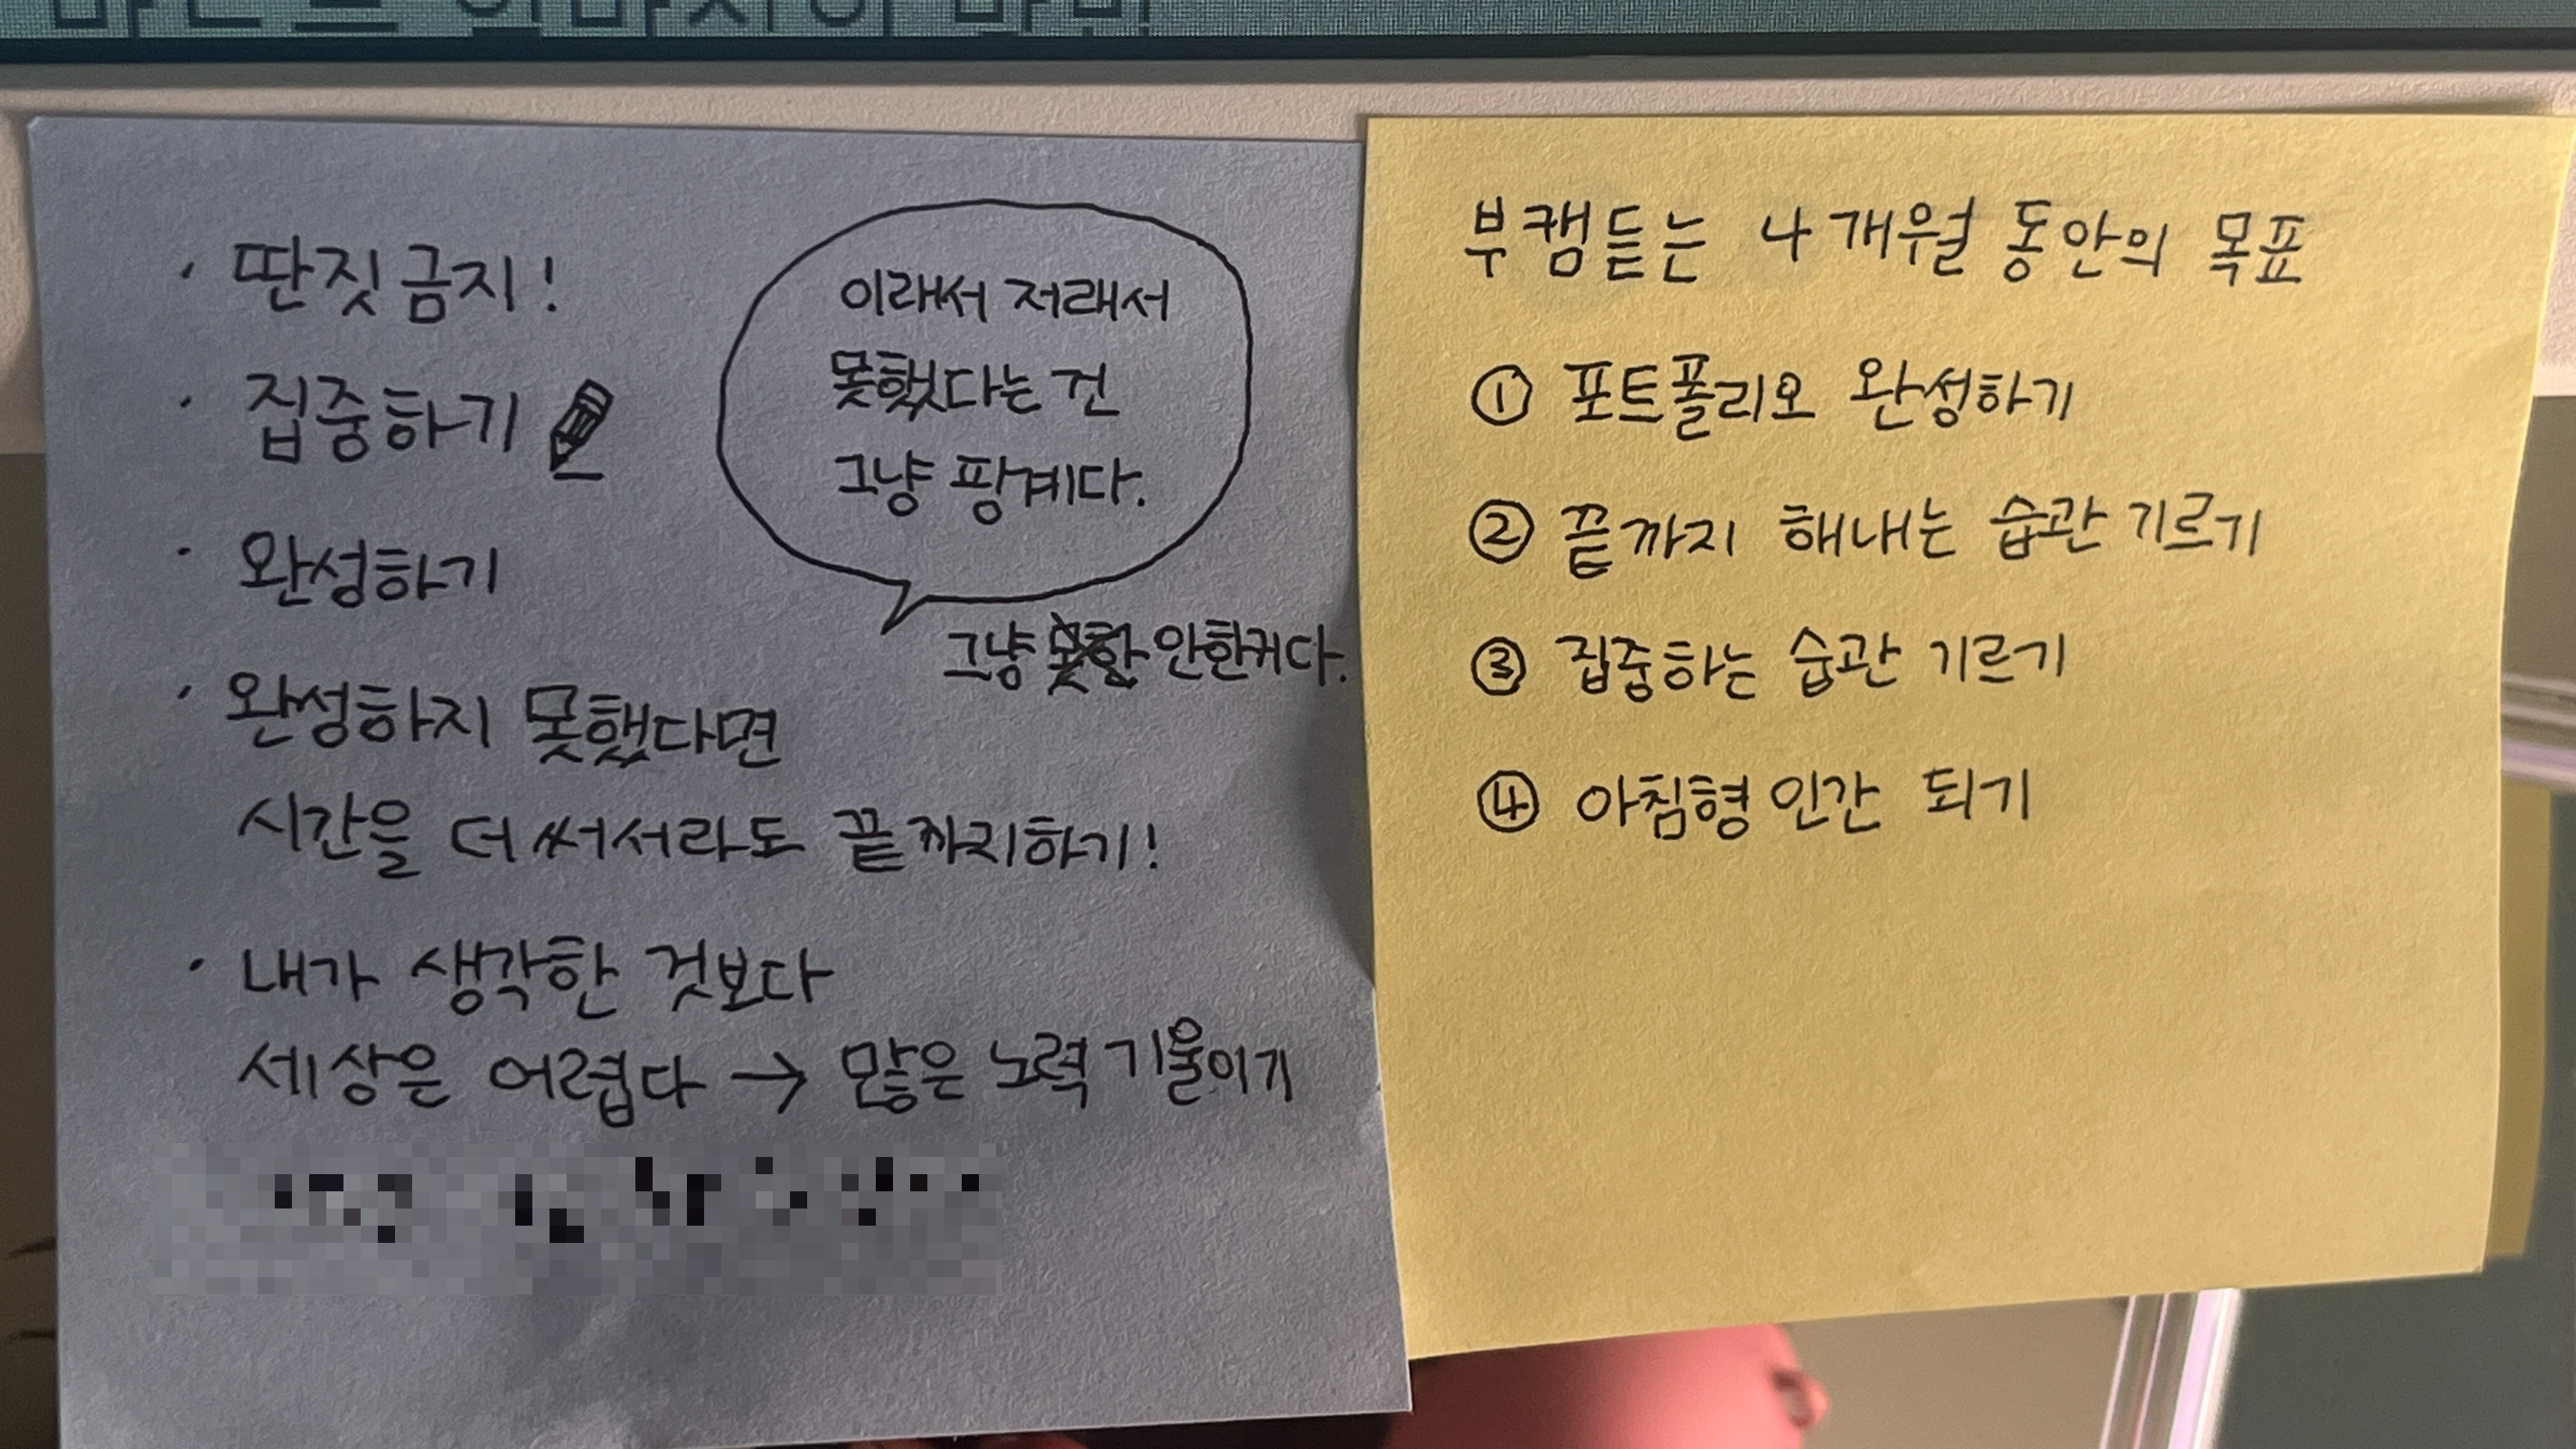 · 딴짓 금지!
· 집중하기
· 완성하기
· 완성하지 못했다면
시간을 더 써서라도 끝까지하기!
· 내가 생각한 것보다
세상은 어렵다 → 많은 노력 기울이기
이래서 저래서
못했다는 건
그냥 핑계다.
그냥 안한거다.
부캠듣는 4개월 동안의 목표
① 포트폴리오 완성하기
② 끝까지 해내는 습관 기르기
③ 집중하는 습관 기르기
④ 아침형 인간 되기